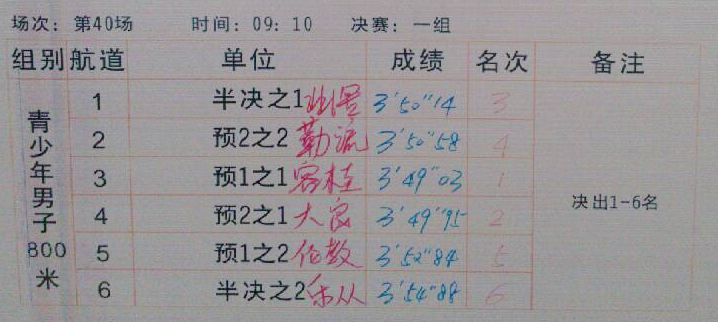 场次：第40场 时间：09：10 决赛：一组
组别 航道 单位 成绩 名次 备注
青少年男子800米
1 半决之1 北滘 3'50"14 3
2 预2之2 勒流 3'50"58 4
3 预1之1 容桂 3'49"03 1
4 预2之1 大良 3'49"95 2
5 预1之2 伦教 3'52"84 5
6 半决之2 乐从 3'54"88 6
决出1-6名